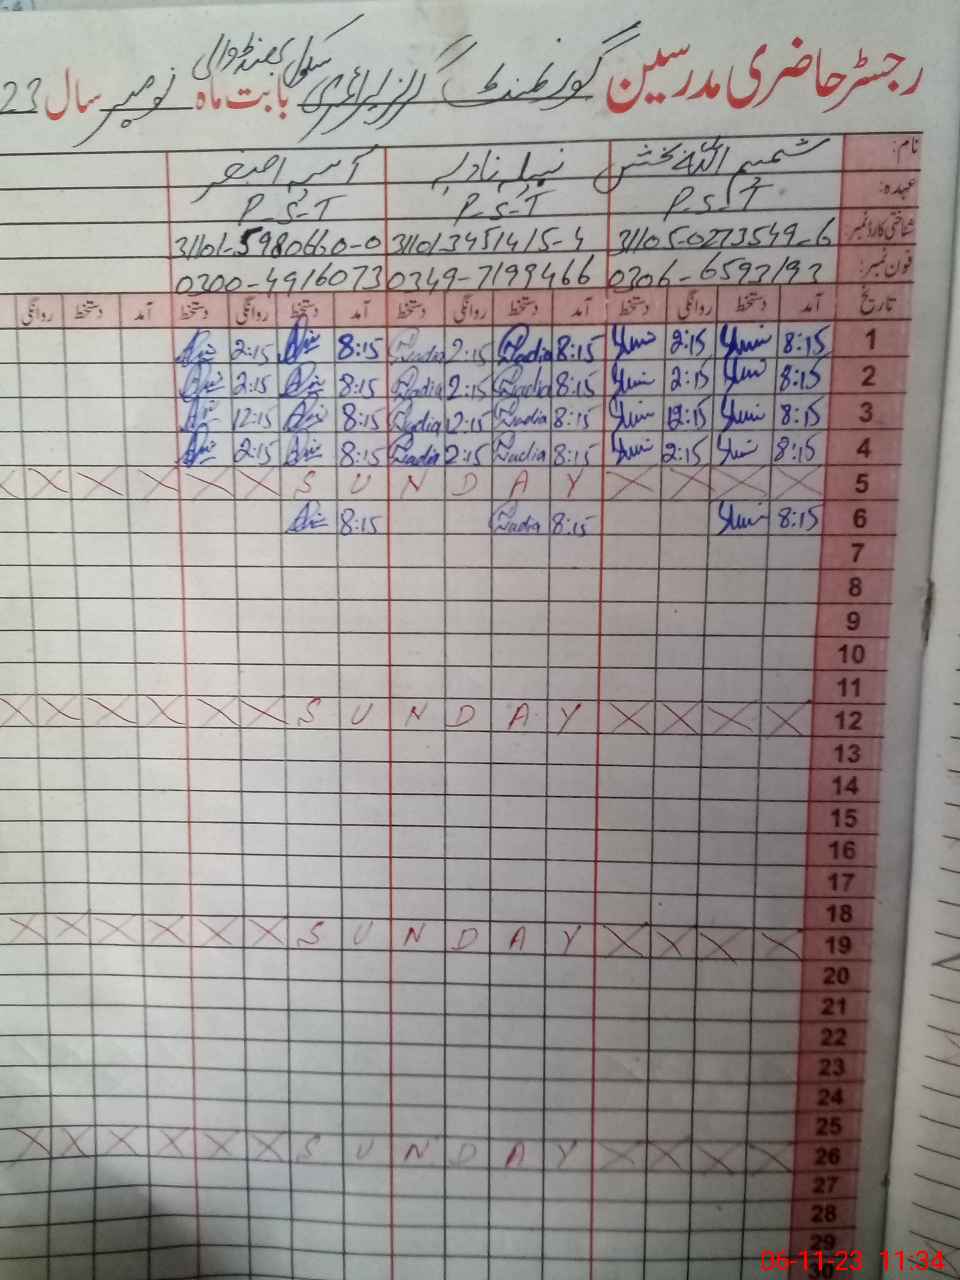 رجسٹر حاضری مدرسین گورنمنٹ گرلز پرائمری سکول بابت ماہ نومبر سال 23
نام: شمیم اللہ بخش نبیلہ نادیہ آسیہ اصغر
عہدہ: P.S.T P.S.T P.S.T
شناختی کارڈ نمبر: 31105-0273549-6 31101-3451415-4 31101-5980660-0
فون نمبر: 0306-6592192 0349-7199466 0300-4916073
تاریخ آمد دستخط روانگی دستخط آمد دستخط روانگی دستخط آمد دستخط روانگی دستخط آمد دستخط روانگی
1 8:15 2:15 8:15 Nadia 2:15 Nadia 8:15 2:15
2 8:15 2:15 8:15 Nadia 2:15 Nadia 8:15 2:15
3 8:15 12:15 8:15 Nadia 12:15 Nadia 8:15 12:15
4 8:15 2:15 8:15 Nadia 2:15 Nadia 8:15 2:15
5 SUNDAY
6 8:15 8:15 Nadia 8:15
7
8
9
10
11
12 SUNDAY
13
14
15
16
17
18
19 SUNDAY
20
21
22
23
24
25
26 SUNDAY
27
28
29
30
06-11-23 11:34